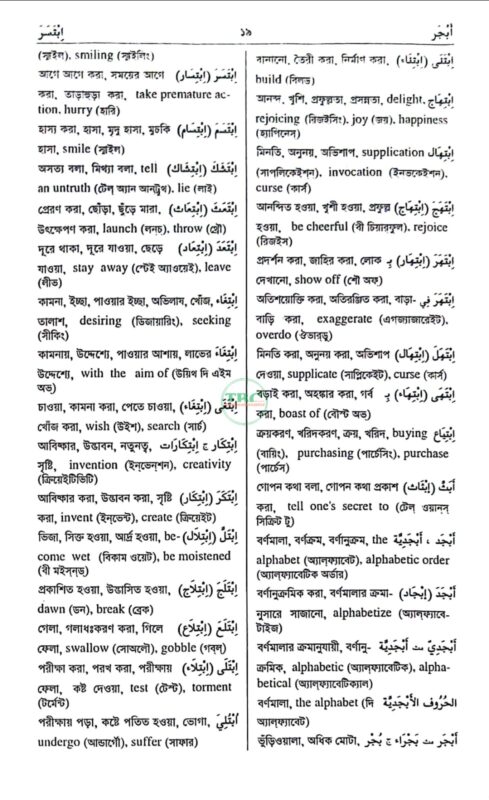 اِبْتَسَرَ ১৯ أَبْجَر
(স্মাইল), smiling (স্মাইলিং)
আগে আগে করা, সময়ের আগে (اِبْتِسَار) اِبْتَسَرَ
করা, তাড়াহুড়া করা, take premature ac-
tion, hurry (হারি)
হাস্য করা, হাসা, মৃদু হাসা, মুচকি (اِبْتِسَام) اِبْتَسَمَ
হাসা, smile (স্মাইল)
অসত্য বলা, মিথ্যা বলা, tell (اِبْتِشَاك) اِبْتَشَكَ
an untruth (টেল্ অ্যান আনট্রুথ), lie (লাই)
প্রেরণ করা, ছোঁড়া, ছুঁড়ে মারা, (اِبْتِعَاث) اِبْتَعَثَ
উৎক্ষেপণ করা, launch (লন্‌চ), throw (থ্রো)
দূরে থাকা, দূরে যাওয়া, ছেড়ে (اِبْتِعَاد) اِبْتَعَدَ
যাওয়া, stay away (স্টেই অ্যাওয়েই), leave
(লীভ)
কামনা, ইচ্ছা, পাওয়ার ইচ্ছা, অভিলাষ, খোঁজ, اِبْتِغَاء
তালাশ, desiring (ডিজায়ারিং), seeking
(সীকিং)
কামনায়, উদ্দেশ্যে, পাওয়ার আশায়, লাভের اِبْتِغَاءَ
উদ্দেশ্যে, with the aim of (উয়িথ দি এইম
অভ)
চাওয়া, কামনা করা, পেতে চাওয়া, (اِبْتِغَاء) اِبْتَغَى
খোঁজ করা, wish (উইশ), search (সার্চ)
আবিষ্কার, উদ্ভাবন, নতুনত্ব, اِبْتِكَار ج اِبْتِكَارَات
সৃষ্টি, invention (ইন্‌ভেনশন), creativity
(ক্রিয়েইটিভিটি)
আবিষ্কার করা, উদ্ভাবন করা, সৃষ্টি (اِبْتِكَار) اِبْتَكَرَ
করা, invent (ইন্‌ভেন্ট), create (ক্রিয়েইট)
ভিজা, সিক্ত হওয়া, আর্দ্র হওয়া, be- (اِبْتِلَال) اِبْتَلَّ
come wet (বিকাম ওয়েট), be moistened
(বী মইস্‌ন্‌ড)
প্রকাশিত হওয়া, উদ্ভাসিত হওয়া, (اِبْتِلَاج) اِبْتَلَجَ
dawn (ডন), break (ব্রেক)
গেলা, গলাধঃকরণ করা, গিলে (اِبْتِلَاع) اِبْتَلَعَ
ফেলা, swallow (সোঅলৌ), gobble (গব্‌ল্)
পরীক্ষা করা, পরখ করা, পরীক্ষায় (اِبْتِلَاء) اِبْتَلَى
ফেলা, কষ্ট দেওয়া, test (টেস্ট), torment
(টর্মেন্ট)
পরীক্ষায় পড়া, কষ্টে পতিত হওয়া, ভোগা, اُبْتُلِيَ
undergo (আন্ডার্গৌ), suffer (সাফার)
বানানো, তৈরী করা, নির্মাণ করা, (اِبْتِنَاء) اِبْتَنَى
build (বিল্ড)
আনন্দ, খুশি, প্রফুল্লতা, প্রসন্নতা, delight, اِبْتِهَاج
rejoicing (রিজইসিং), joy (জয়), happiness
(হ্যাপিনেস)
মিনতি, অনুনয়, অভিশাপ, supplication اِبْتِهَال
(সাপলিকেইশন), invocation (ইনভকেইশন),
curse (কার্স)
আনন্দিত হওয়া, খুশী হওয়া, প্রফুল্ল (اِبْتِهَاج) اِبْتَهَجَ
হওয়া, be cheerful (বী চিয়ারফুল), rejoice
(রিজইস)
প্রদর্শন করা, জাহির করা, লোক بِـ (اِبْتِهَار) اِبْتَهَرَ
দেখানো, show off (শৌ অফ)
অতিশয়োক্তি করা, অতিরঞ্জিত করা, বাড়া- اِبْتَهَرَ فِي
বাড়ি করা, exaggerate (এগজ্যাজারেইট),
overdo (ঔভারডূ)
মিনতি করা, অনুনয় করা, অভিশাপ (اِبْتِهَال) اِبْتَهَلَ
দেওয়া, supplicate (সাপ্লিকেইট), curse (কার্স)
বড়াই করা, অহঙ্কার করা, গর্ব بِـ (اِبْتِهَاء) اِبْتَهَى
করা, boast of (বৌস্ট অভ)
ক্রয়করণ, খরিদকরণ, ক্রয়, খরিদ, buying اِبْتِيَاع
(বায়িং), purchasing (পার্চেসিং), purchase
(পার্চেস)
গোপন কথা বলা, গোপন কথা প্রকাশ (إِبْثَاث) أَبَثَّ
করা, tell one's secret to (টেল্ ওয়ানস্
সিক্রিট টু)
বর্ণমালা, বর্ণক্রম, বর্ণানুক্রম, the أَبْجَد ، أَبْجَدِيَّة
alphabet (অ্যাল্‌ফ্যাবেট), alphabetic order
(অ্যাল্‌ফ্যাবেটিক অর্ডার)
বর্ণানুক্রমিক করা, বর্ণমালার ক্রমা- (إِبْجَاد) أَبْجَدَ
নুসারে সাজানো, alphabetize (অ্যাল্‌ফ্যাবে-
টাইজ)
বর্ণমালার ক্রমানুযায়ী, বর্ণানু- أَبْجَدِيّ ــ أَبْجَدِيَّة
ক্রমিক, alphabetic (অ্যাল্‌ফ্যাবেটিক), alpha-
betical (অ্যাল্‌ফ্যাবেটিক্যাল)
বর্ণমালা, the alphabet (দি الحُرُوف الأَبْجَدِيَّة
অ্যাল্‌ফ্যাবেট)
ভুঁড়িওয়ালা, অধিক মোটা, أَبْجَر ــ بَجْرَاء ج بُجْر